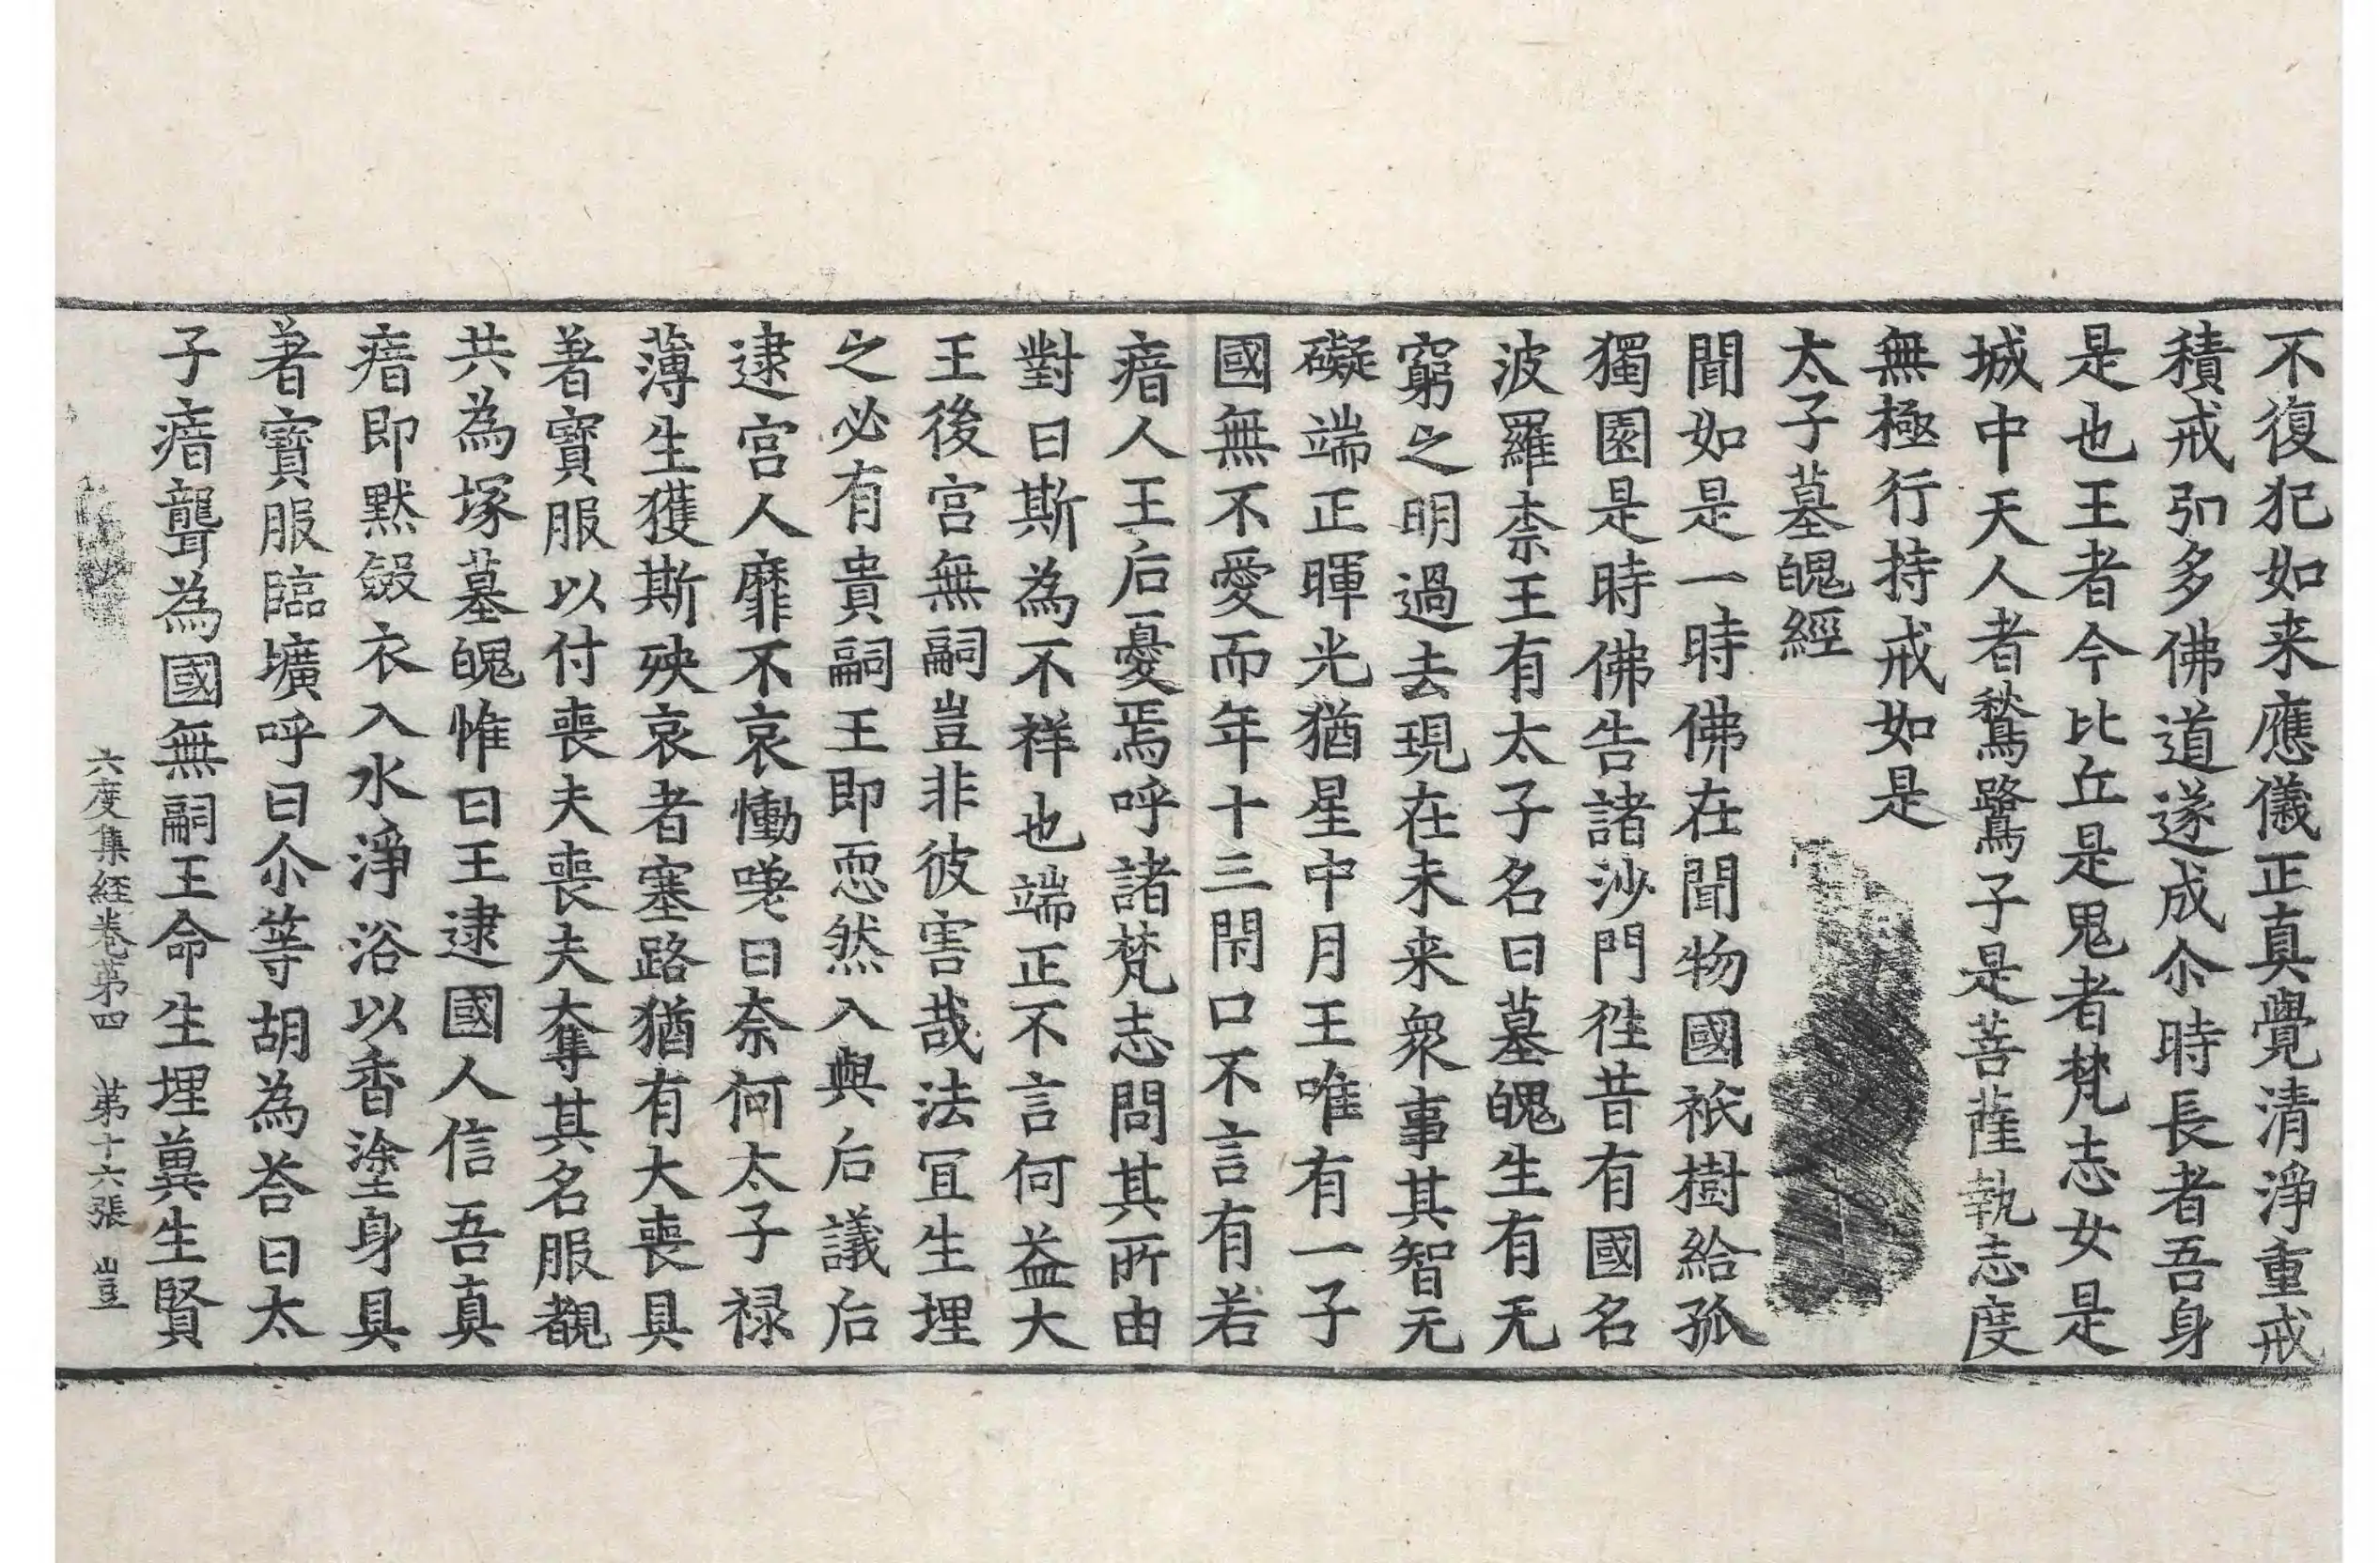 不復犯如来應儀正真覺清淨重戒
積戒弘多佛道遂成尒時長者吾身
是也王者今比丘是鬼者梵志女是
城中天人者鶖鷺子是菩薩執志度
無極行持戒如是
太子墓魄經
聞如是一時佛在聞物國祇樹給孤
獨園是時佛告諸沙門徃昔有國名
波羅柰王有太子名曰墓魄生有无
窮之明過去現在未来衆事其智无
礙端正暉光猶星中月王唯有一子
國無不愛而年十三閇口不言有若
瘖人王后憂焉呼諸梵志問其所由
對曰斯為不祥也端正不言何益大
王後宮無嗣豈非彼害哉法宜生埋
之必有貴嗣王即恧然入與后議后
逮宮人靡不哀慟嘆曰奈何太子禄
薄生獲斯殃哀者塞路猶有大喪具
著寶服以付喪夫喪夫奪其名服覩
共為塚墓魄惟曰王逮國人信吾真
瘖即默斂衣入水淨浴以香塗身具
著寶服臨壙呼曰尒等胡為荅曰太
子瘖聾為國無嗣王命生埋冀生賢
六度集経卷苐四 苐十六張 豈